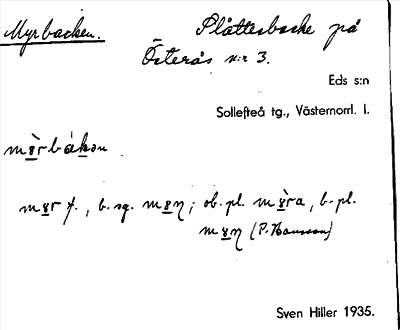 Myrbacken. Slåttesbacke på
Österås n:r 3.
Eds s:n
Sollefteå tg., Västernorrl. l.
mỳ̱rbák̠ən
my̱r f., b. sg. my̱ɳ; ob. pl. mỳ̱ra, b. pl.
my̱ɳ (P. Hansson)
Sven Hiller 1935.